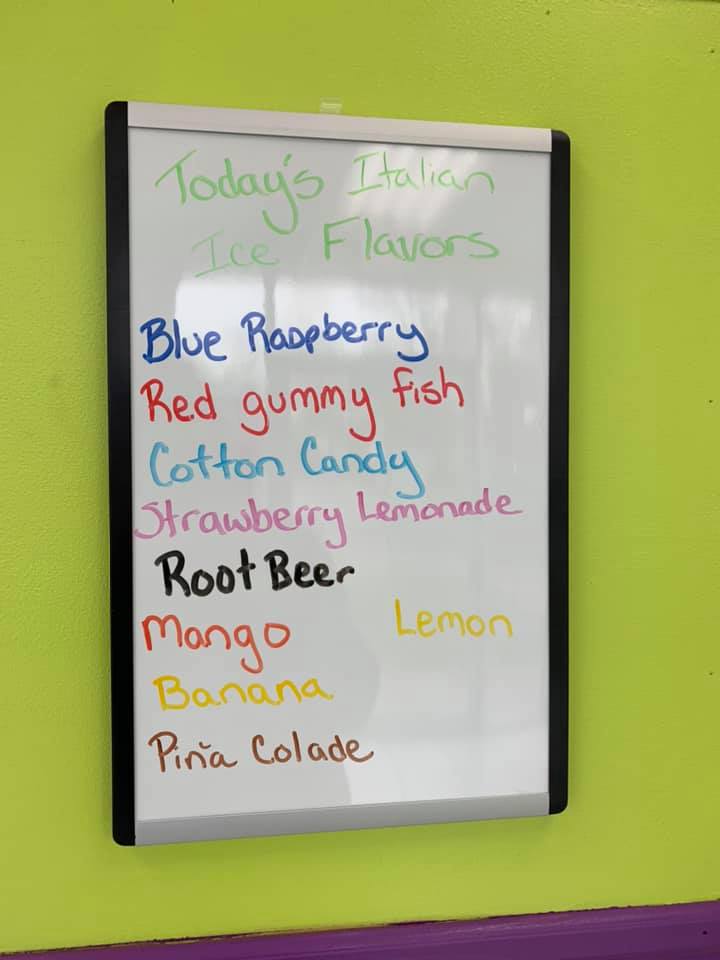 Today's Italian
Ice Flavors
Blue Raspberry
Red gummy fish
Cotton Candy
Strawberry Lemonade
Root Beer
Mango Lemon
Banana
Piña Colade